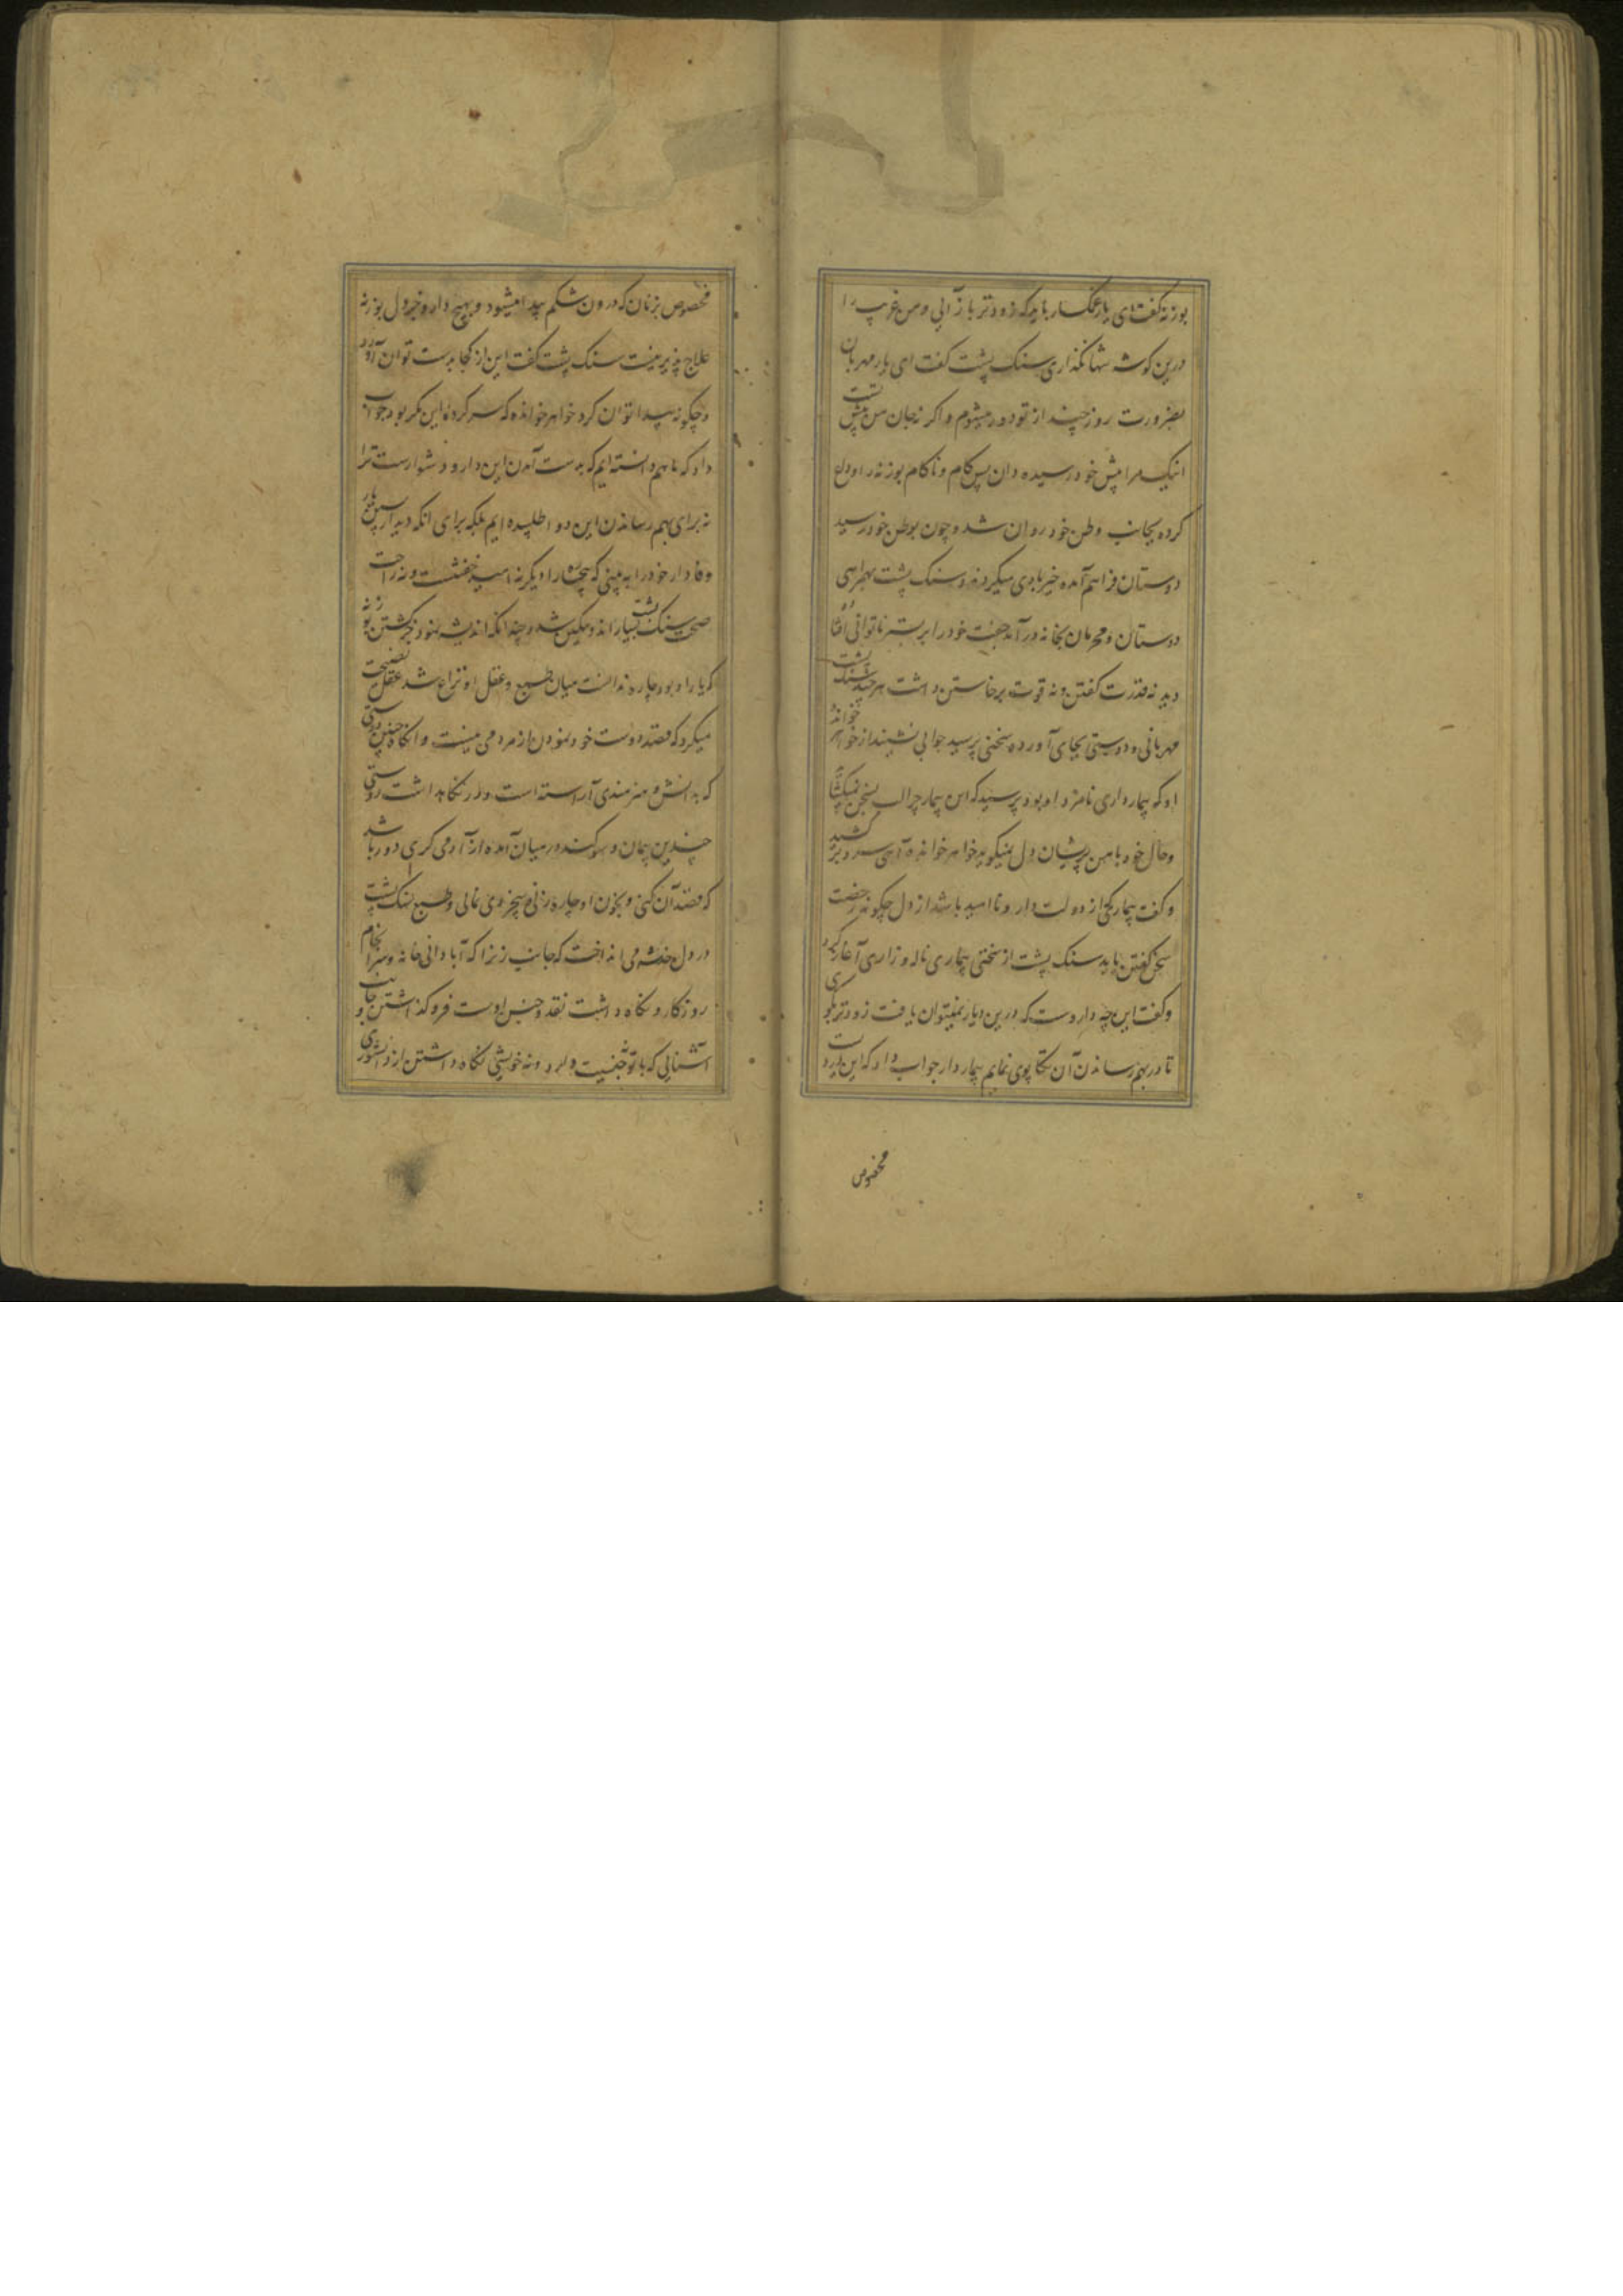 بوزنه گفت ای یار غمگسار باید که زودتر باز آیی و من غریب را
درین گوشه تنها نگذاری سنگ پشت گفت ای یار مهربان
بضرورت روز چند از تو دور میشوم و اگر نه جان من پیش تست
اینک مرا پیش خود رسیده دان پس کام و ناکام بوزنه را ودل
کرده بجانب وطن خود روان شد و چون بوطن خود رسید
دوستان فراهم آمده خیربادی میکردند و سنگ پشت بهمراهی
دوستان و محرمان بخانه در آمد جفت خود را بر بستر ناتوانی افتاده
دید نه قدرت گفتن و نه قوت برخاستن داشت هر چند سنگ پشت
مهربانی و دوستی بجای آورده سخنی پرسید جوابی نشنید از خواهر خوانده
او که بیمارداری نامزد او بود پرسید که این بیمار چرا لب بسخن نمیگشاید
و حال خود با من پریشان دل نمیگوید خواهر خوانده آهی سرد برکشید
و گفت بیماریکه از دولت دارو ناامید باشد از دل چگونه رخصت
سخن گفتن یابد سنگ پشت از سختی بیماری ناله و زاری آغاز کرد
و گفت این چه داروست که درین دیار نمیتوان یافت زودتر بگوی
تا در بهم رساندن آن تکاپوی نمایم بیماردار جواب داد که این دردیست
مخصوص
مخصوص بزنان که درون شکم پیدا میشود و بهیچ دارو جز دل بوزنه
علاج پذیر نیست سنگ پشت گفت این از کجا بدست توان آورد
و چگونه پیدا توان کرد خواهر خوانده که سرکرده این مکر بود جواب
داد که ما هم دانسته ایم که بدست آمدن این دارو دشوارست ترا
نه برای بهم رساندن این دوا طلبیده ایم بلکه برای آنکه دیدار پسین یار
وفادار خود را به بینی که بیچاره را دیگر نه امید خفتنست و نه راحت
صحت سنگ پشت بسیار اندوهگین شد و چندانکه اندیشه نمود بجز کشتن بوزنه
که یار او بود چاره ندانست میان طبع و عقل او نزاع شد عقل نصیحت
میکرد که قصد دوست خود نمودن از مردمی نیست و آنگاه چنین دوستی
که بدانش و هنرمندی آراسته است و در نگاهداشت دوستی
چندین پیمان و سوگند در میان آمده از آدمی گری دور باشد
که قصد آن کنی و بخون او چاره زنی بیخردی نمائی و طبع سنگ پشت
در دل خدشه می انداخت که جانب زنرا که آبادانی خانه و سرانجام
روزگار و نگاه داشت نقد و جنس اوست فرو گذاشتن و جانب
آشنایی که با تو نه جنسیت دارد و نه خویشی نگاه داشتن از دانشوری